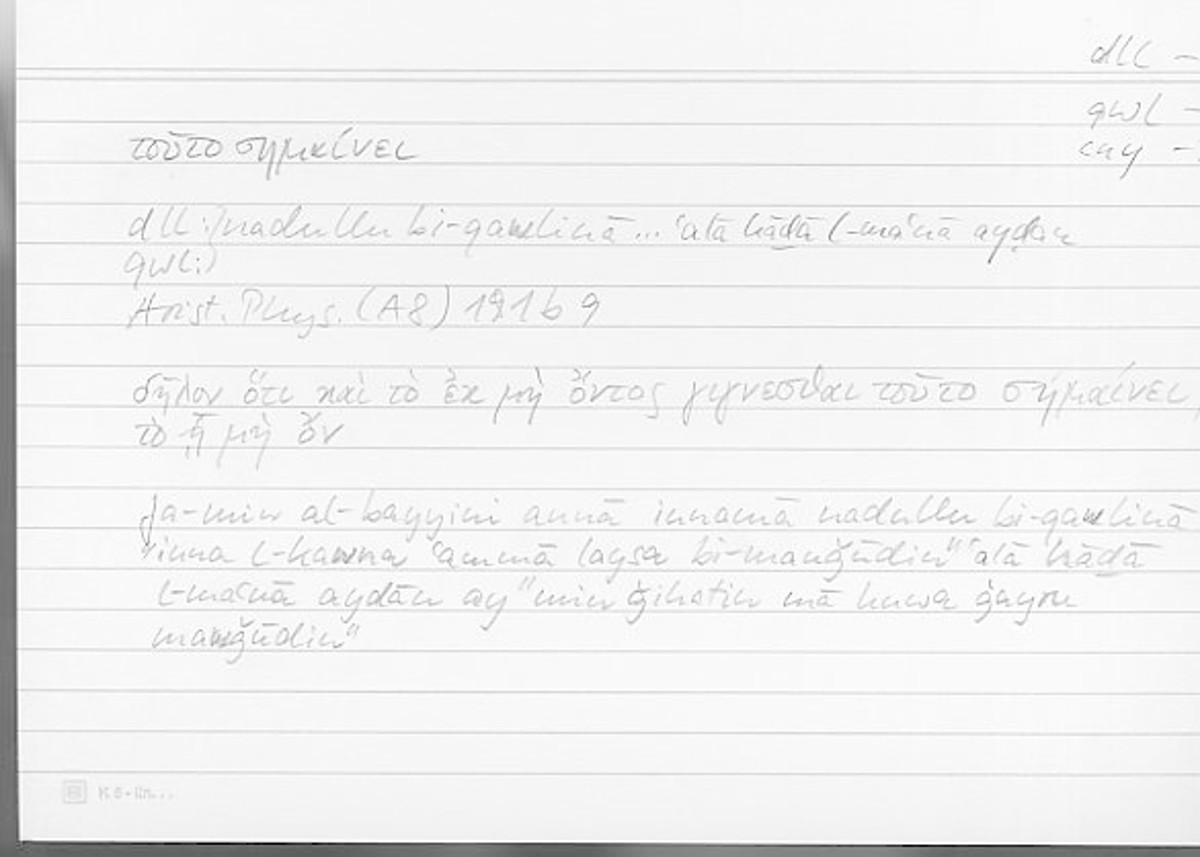 dll –
qwl –
τοῦτο σημαίνει
cny –
dll: nadullu bi-qawlinā ... ʿalā hāḏā l-maʿnā ayḍan
qwl:
Arist. Phys. (A8) 191b 9
δῆλον ὅτι καὶ τὸ ἐκ μὴ ὄντος γίγνεσθαι τοῦτο σημαίνει,
τὸ ᾗ μὴ ὄν
fa-min al-bayyini annā innamā nadullu bi-qawlinā
"inna l-kawna ʿammā laysa bi-mawǧūdin" ʿalā hāḏā
l-maʿnā ayḍan ay "min ǧihatin mā huwa ġayru
mawǧūdin"